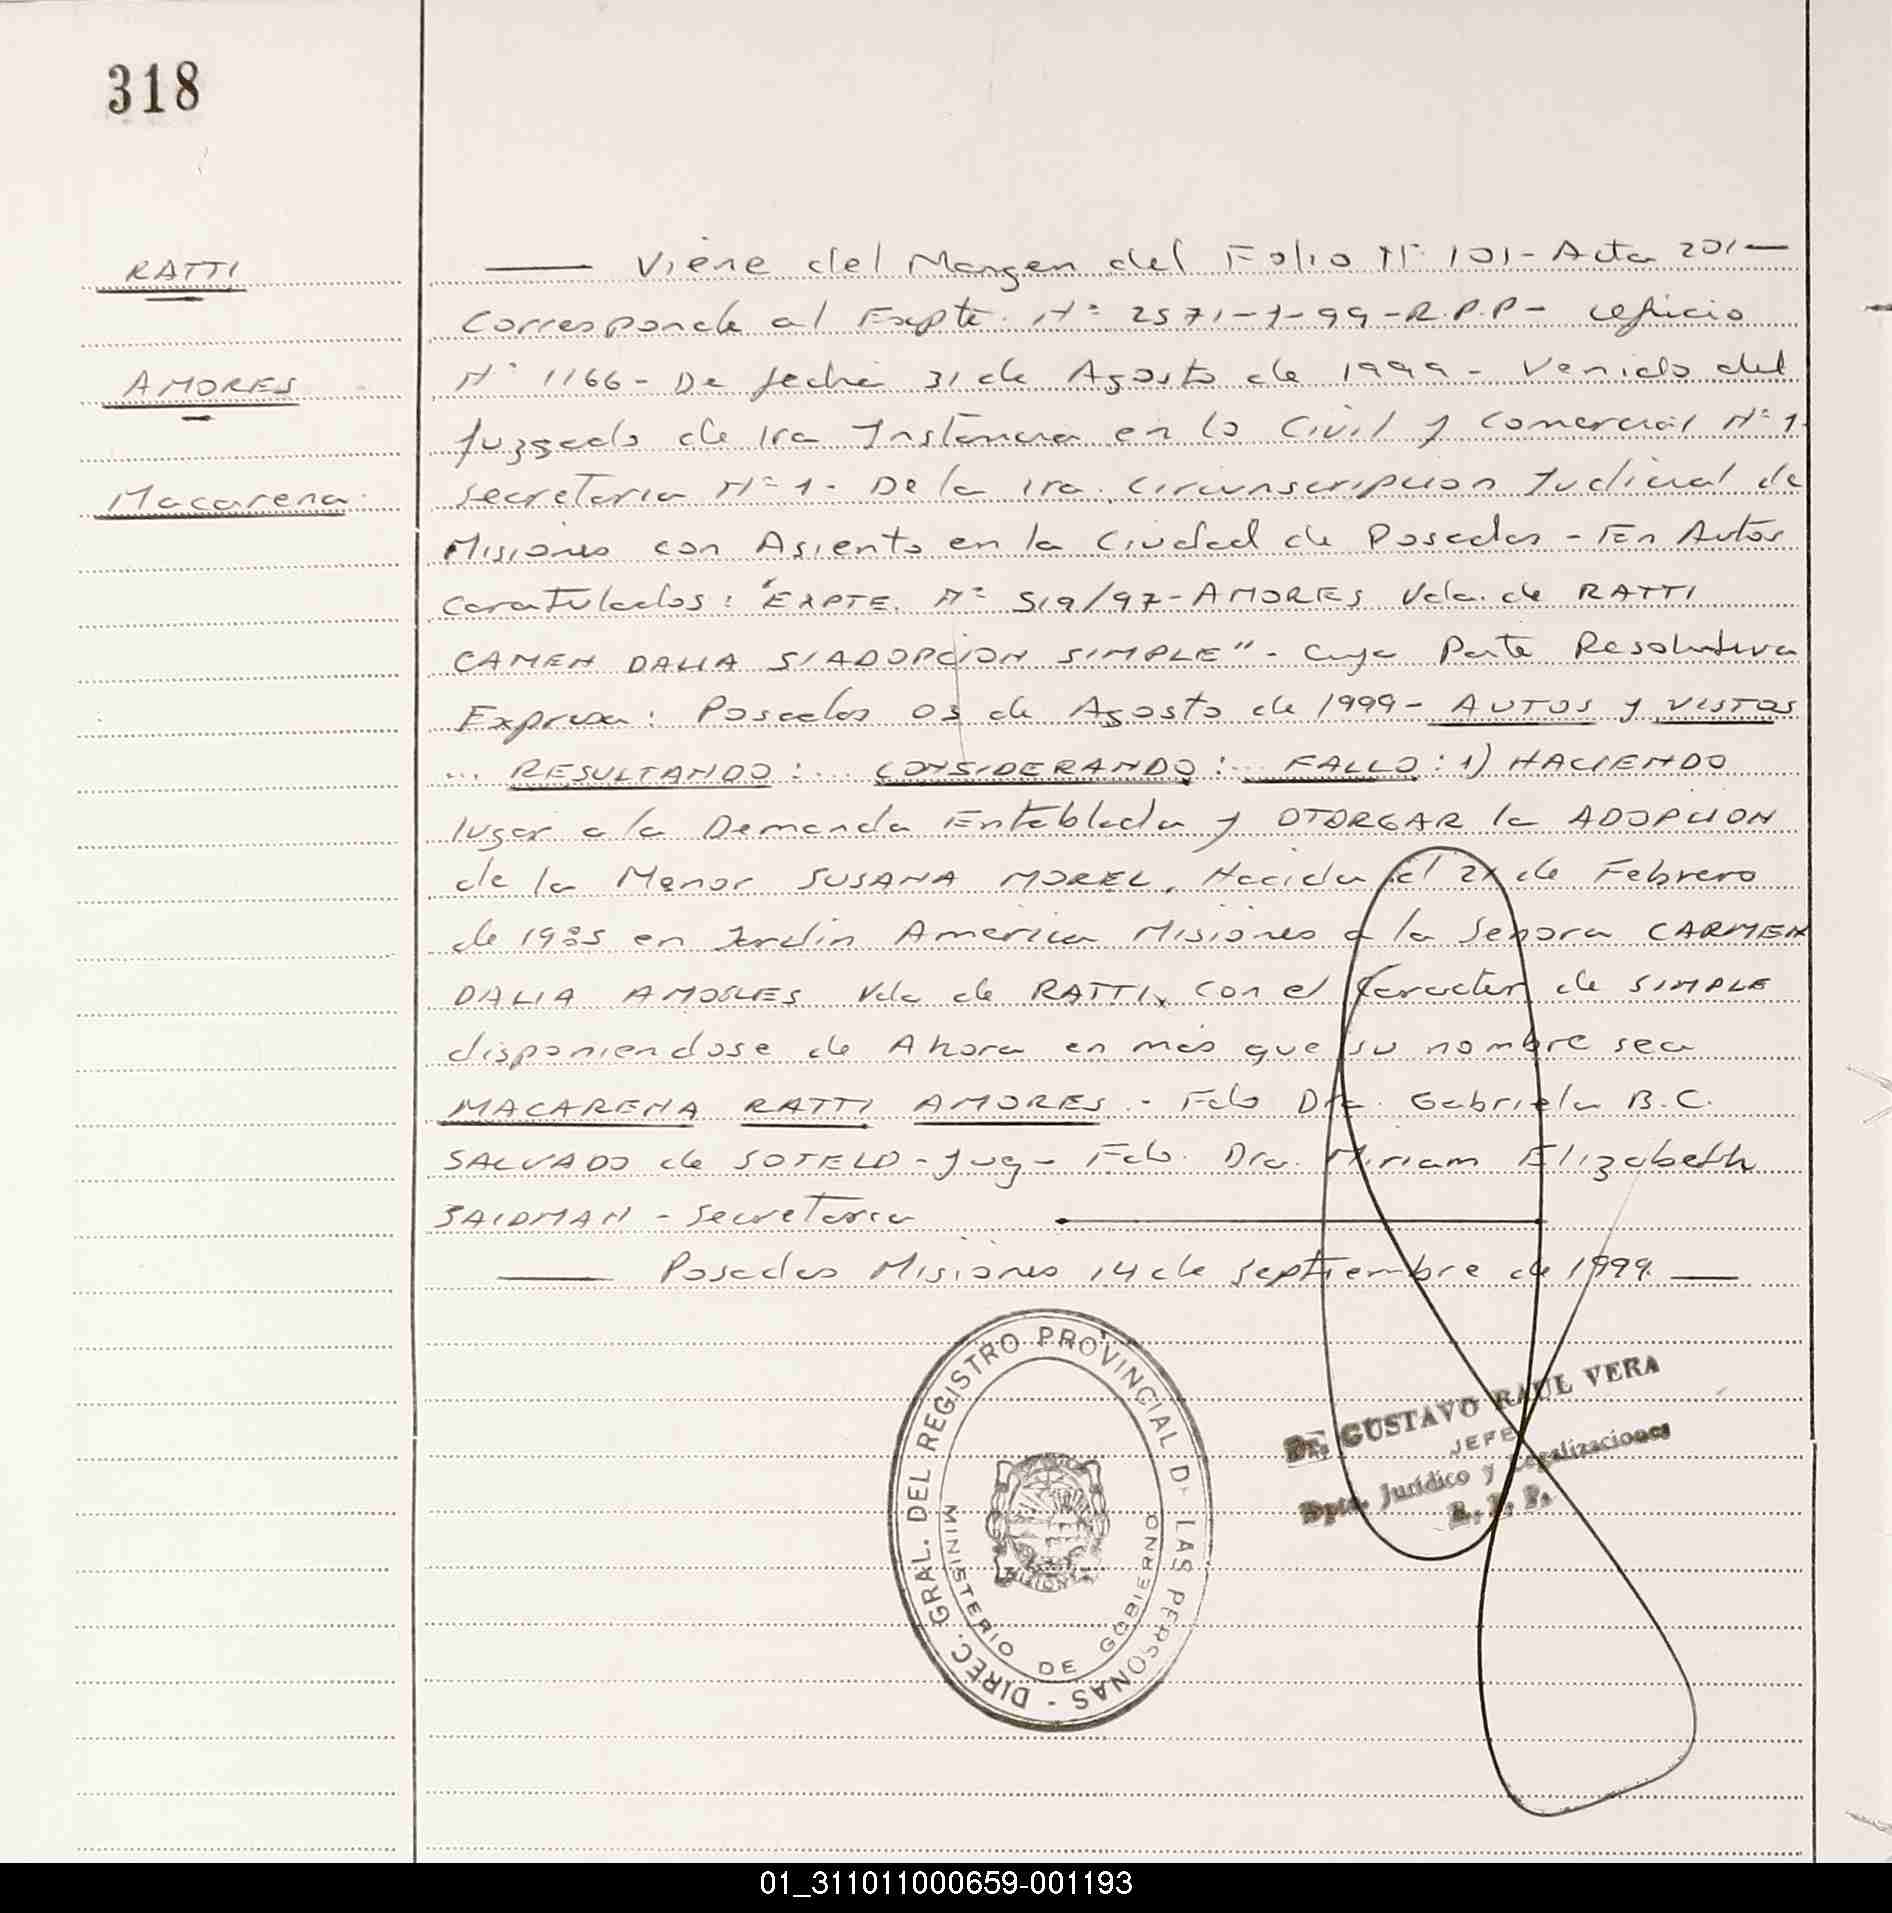 318
RATTI
AMORES
Macarena
Viene del Margen del Folio Nº 101- Acta 201
Corresponde al Expte. Nº 2571-J-99-R.P.P- Oficio
Nº 1166- De fecha 31 de Agosto de 1999- Venido del
Juzgado de 1ra Instancia en lo Civil y Comercial Nº 1.
Secretaria Nº 1- De la 1ra. Circunscripcion Judicial de
Misiones con Asiento en la Ciudad de Posadas - En Autos
Caratulados: "EXPTE. Nº 519/97- AMORES Vda. de RATTI
CAMEN DALIA S/ADOPCION SIMPLE"- Cuya Parte Resolutiva
Expresa: Posadas 03 de Agosto de 1999- AUTOS y VISTOS
... RESULTANDO:... CONSIDERANDO:... FALLO: 1) HACIENDO
lugar a la Demanda Entablada y OTORGAR la ADOPCION
de la Menor SUSANA MOREL, Nacida el de Febrero
de 1985 en Jardin America Misiones a la Señora CARMEN
DALIA Vda de RATTI, con el Caracter de SIMPLE
disponiendose de Ahora en más que su nombre sea
MACARENA RATTI AMORES.- Fdo Dra. Gabriela B.C.
SALVADO de SOTELO - - Fdo. Dra. Miriam Elizabeth
SAIDMAN - Secretaria
Posadas Misiones 14 de Septiembre de 1999.
DIREC. GRAL. DEL REGISTRO PROVINCIAL DE LAS PERSONAS -
MINISTERIO DE GOBIERNO
MISIONES
Dr. GUSTAVO RAUL VERA
JEFE
Dpto. Jurídico y Legalizaciones
R. P. P.
01_311011000659-001193